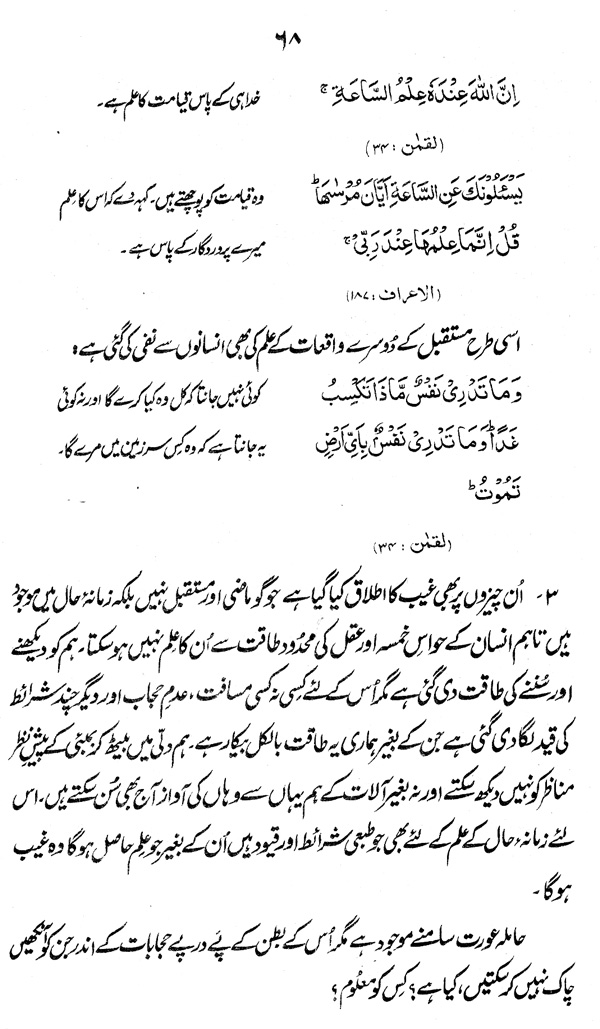 ۶۸
اِنَّ اللّٰهَ عِنْدَهٗ عِلْمُ السَّاعَةِ ۚ خدا ہی کے پاس قیامت کا علم ہے۔
(لقمٰن : ۳۴)
يَسْـَٔلُوْنَكَ عَنِ السَّاعَةِ اَيَّانَ مُرْسٰىهَا ؕ وہ قیامت کو پوچھتے ہیں۔ کہہ دے کہ اس کا علم
قُلْ اِنَّمَا عِلْمُهَا عِنْدَ رَبِّيْ ۚ میرے پروردگار کے پاس ہے۔
(الاعراف : ۱۸۷)
اسی طرح مستقبل کے دُوسرے واقعات کے علم کی بھی انسانوں سے نفی کی گئی ہے :
وَمَا تَدْرِيْ نَفْسٌ مَّاذَا تَكْسِبُ کوئی نہیں جانتا کہ کل وہ کیا کرے گا اور نہ کوئی
غَدًا ؕ وَمَا تَدْرِيْ نَفْسٌۢ بِاَيِّ اَرْضٍ یہ جانتا ہے کہ وہ کس سرزمین میں مرے گا۔
تَمُوْتُ ؕ
(لقمٰن : ۳۴)
۳۔ اُن چیزوں پر بھی غیب کا اطلاق کیا گیا ہے جو گو ماضی اور مستقبل نہیں بلکہ زمانۂ حال میں موجود
ہیں تاہم انسان کے حواسِ خمسہ اور عقل کی محدُود طاقت سے اُن کا علم نہیں ہو سکتا۔ ہم کو دیکھنے
اور سُننے کی طاقت دی گئی ہے مگر اُس کے لئے کسی نہ کسی مسافت، عدمِ حجاب اور دیگر چند شرائط
کی قید لگا دی گئی ہے جن کے بغیر ہماری یہ طاقت بالکل بیکار ہے۔ ہم دلّی میں بیٹھ کر بمبئی کے پیشِ نظر
مناظر کو نہیں دیکھ سکتے اور نہ بغیر آلات کے ہم یہاں سے وہاں کی آواز آج بھی سُن سکتے ہیں۔ اس
لئے زمانۂ حال کے علم کے لئے بھی جو طبعی شرائط اور قیود ہیں اُن کے بغیر جو علم حاصل ہوگا وہ غیب
ہوگا۔
حاملہ عورت سامنے موجود ہے مگر اُس کے بطن کے پے در پے حجابات کے اندر جن کو آنکھیں
چاک نہیں کر سکتیں، کیا ہے؟ کس کو معلُوم؟